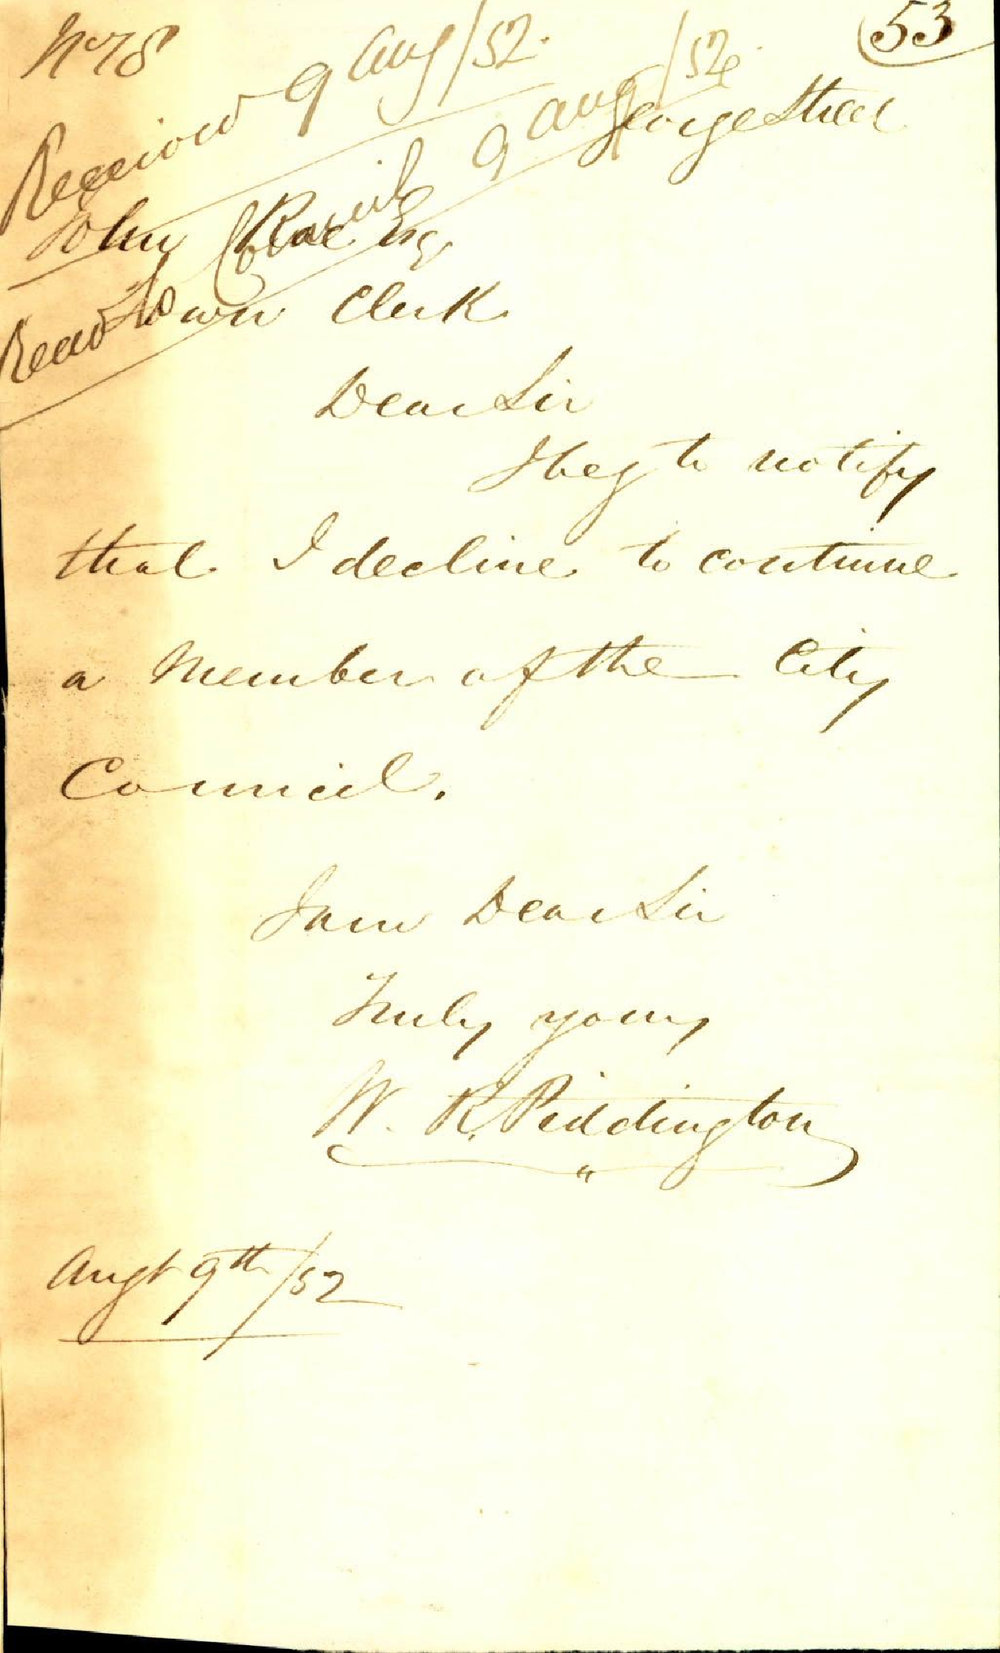 No 78
53
Received 9 Aug/52.
Read Council 9 Aug/52.
George Street
John Rae Esq.
Town Clerk
Dear Sir
I beg to notify
that I decline to continue
a Member of the City
Council.
I am Dear Sir
Truly yours
W. R. Piddington
Augt 9th/52